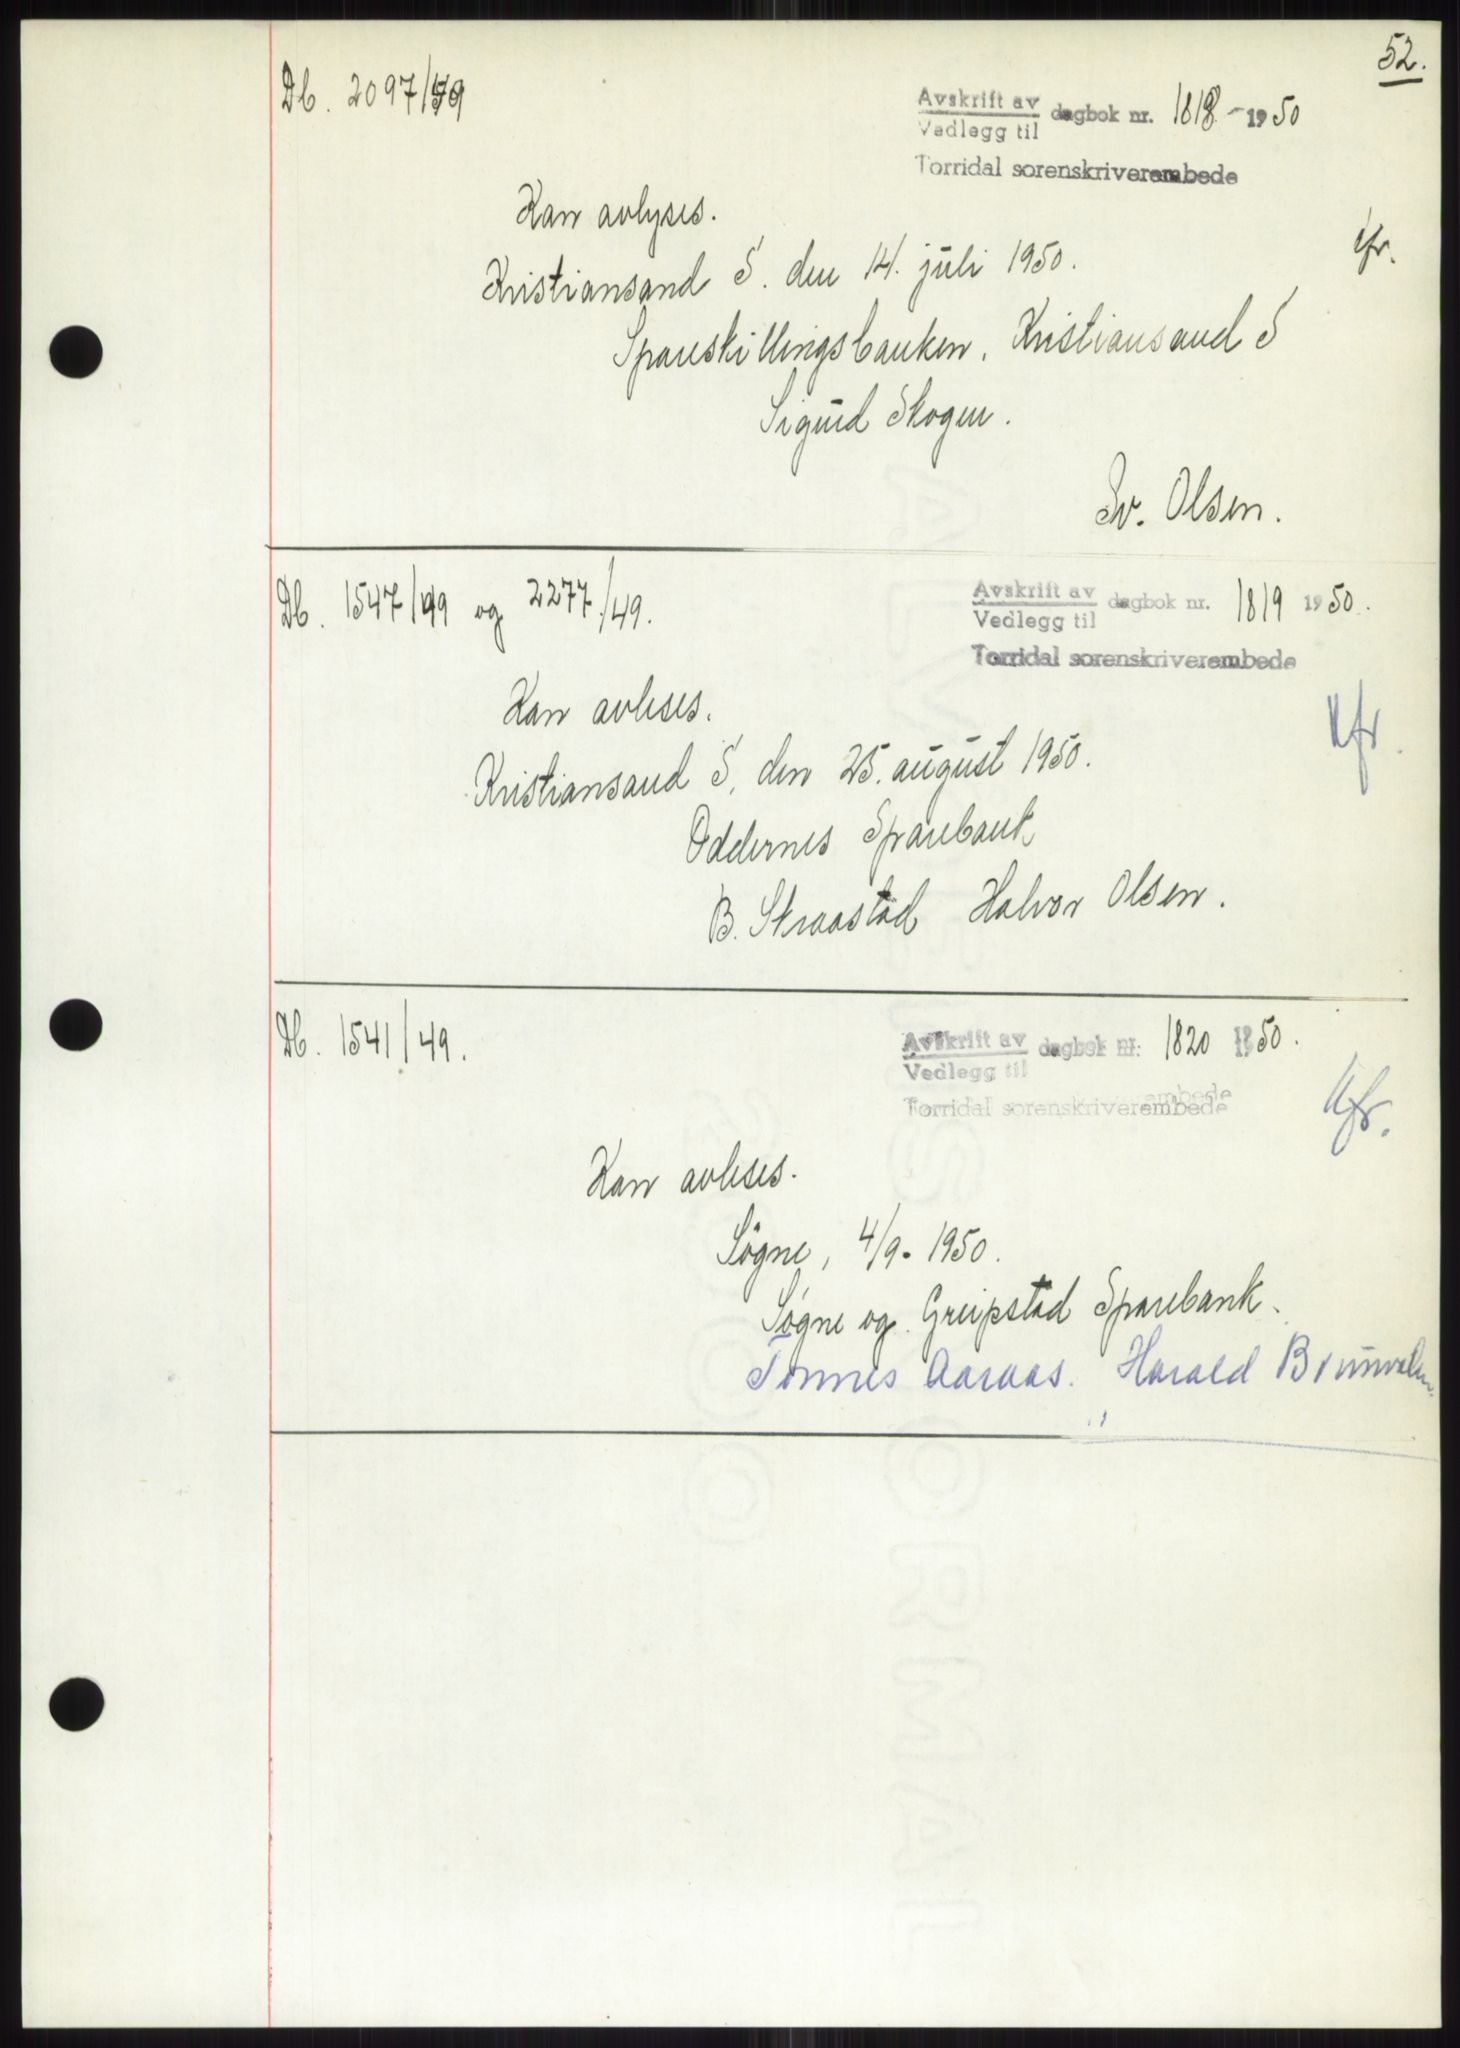 52.
Db. 2097/49
Avskrift av
Vedlegg til
dagbok nr. 1818 - 1950
Torridal sorenskriverembede
Kan avlyses.
Kristiansand S. den 14. juli 1950.
Spareskillingsbanken, Kristiansand S
Sigurd Skogen.
Sv. Olsen.
Db. 1547/49 og 2277/49.
Avskrift av
Vedlegg til
dagbok nr. 1819 1950.
Torridal sorenskriverembede
Kan avleses.
Kristiansand S, den 25. august 1950.
Oddernes Sparebank
B. Straastad Halvor Olsen.
Db. 1541/49.
Avskrift av
Vedlegg til
dagbok nr. 1820 1950.
Torridal sorenskriverembede
Kan avleses.
Søgne, 4/9. 1950.
Søgne og Greipstad Sparebank.
Tønnes Aaraas. Harald